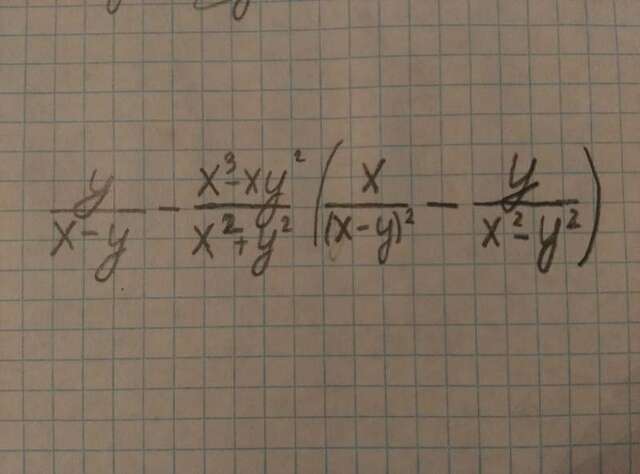 y/(x-y) - (x³-xy²)/(x²+y²) (x/(x-y)² - y/(x²-y²))